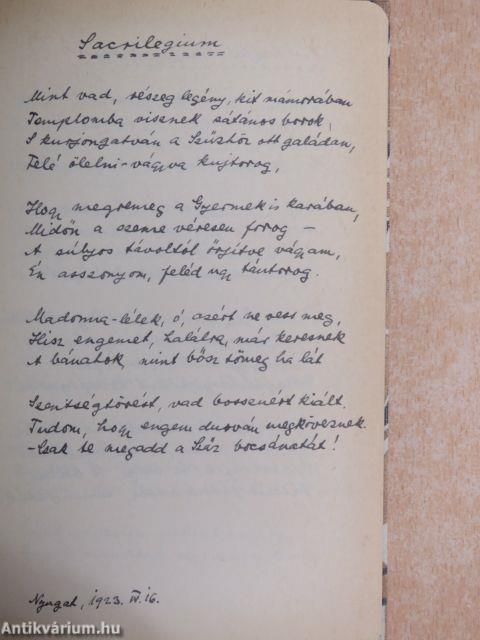 Sacrilegium
Mint vad, részeg legény, kit mámorában
Templomba visznek sátános borok,
S kurjongatván a Szűzhöz ott galádan,
Felé ölelni-vágyva kujtorog,
Hogy megremeg a Gyermek is karában,
Midőn a szeme véresen forog –
A súlyos távoltól őrjítve vágyam,
Én asszonyom, feléd úgy tántorog.
Madonna-lélek, ó, azért ne vess meg,
Hisz engemet, halálra, már keresnek
A bánatok, mint bősz tömeg ha lát
Szentségtörést, vad bosszúért kiált.
Tudom, hogy engem durván megköveznek
-Csak te megadd a Szűz bocsánatát!
Nyugat, 1923. IV. 16.
Antikvárium.hu